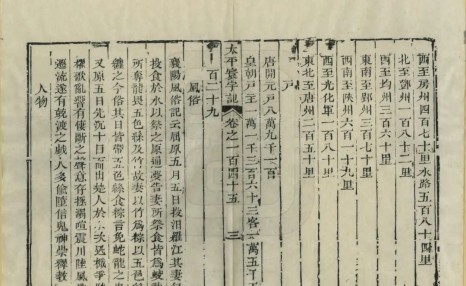 西至房州四百七十里水路五百八十四里
北至鄧州一百八十二里
西至均州三百六十里
東南至郢州三百七十里
西南至陝州六百一十九里
西至光化軍一百八十里
東北至唐州二百五十里
戶
唐開元戶八萬九千一百
皇朝戶主一萬一千三百六十三客一萬五千五
太平寰宇記 卷之一百四十五 三
百二十九
風俗
襄陽風俗記云屈原五月五日投汨羅江其妻每
投食於水以祭之原通夢告妻所祭食皆為蛟
所奪龍畏五色絲及竹故妻以竹為粽以五色
纏之今俗其日皆帶五色絲食粽言免蛟龍之
又原五日先沉十日而出楚人於水次迅檝爭
櫂歌亂響有悽斷之聲意存拯溺喧震川陸風
遷流遂有競渡之戲人多偷墮信鬼神崇釋教
人物